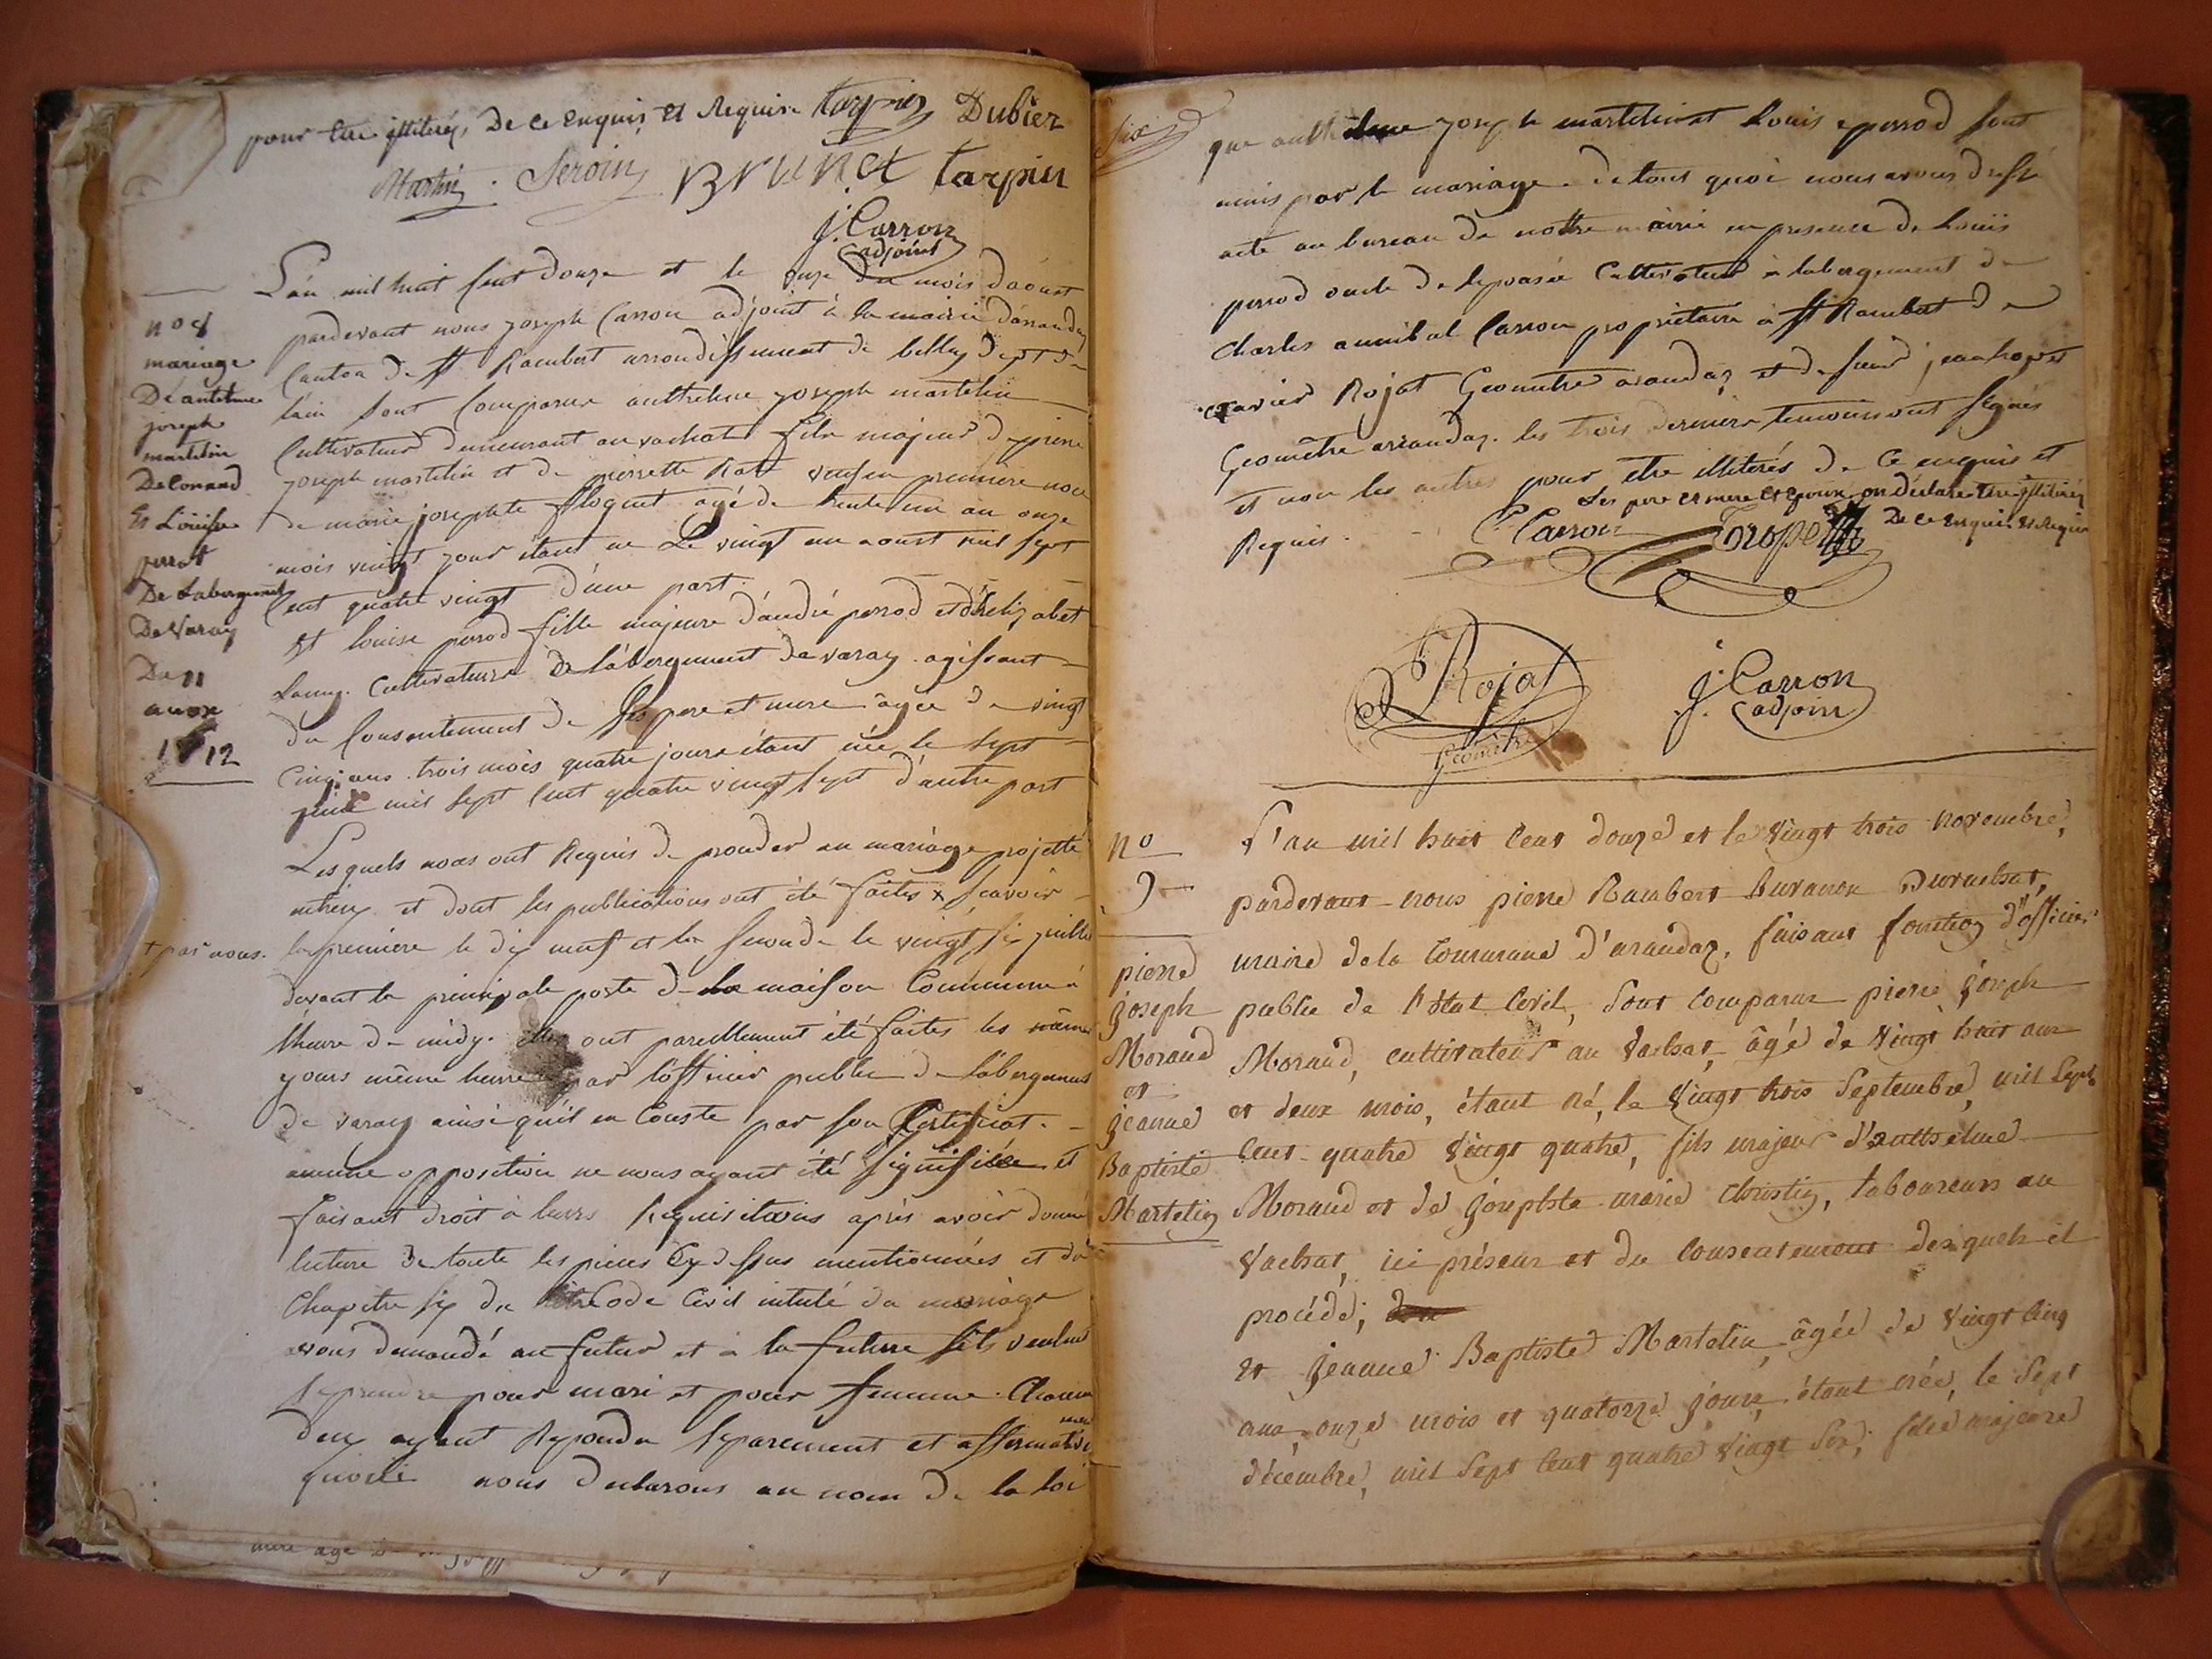 pour être illiterés De ce enquis et Requis tarpin Dubiez
Martin. Seroin BRUNet tarpin
J. Carron
adjoint
L'an mil huit cent douze et le onze du mois d'aoust
pardevant nous joseph Carron adjoint à la mairie d'arandaz
Canton de St Rambert arrondissement de belley dept de
l'ain sont Comparus anthelme joseph martelin
Cultivateur demeurant au vachat fils majeur de pierre
joseph martelin et de pierrette Rat veuf en première noce
de marie josephte floquet agé de trente un an onze
mois vingt jour étant né Le vingt un aoust mil sept
Cent quatre vingt d'une part.
Et louise perrod fille majeure d'andré perrod et d'helizabet
Cultivateurs De l'abergement de varay agissant
du Consentement de ses pere et mere âgée de vingt
Cinq ans trois mois quatre jours étant née le sept
mil sept Cent quatre vingt sept d'autre part
Lesquels nous ont Requis de proceder au mariage projetté
entreux et dont les publications ont été faites x scavoir
la premiere le dix neuf et la seconde le vingt six juillet
devant la principale porte de la maison Commune à
l'heure de midy. elles ont pareillement été faites les mêmes
jours même heure par l'officier public de l'abergement
de varay ainsi qu'il en Conste par son Certificat.
aucune opposition ne nous ayant été signifiée et
faisant droit à leurs Requisitions après avoir donné
lecture de toute les pieces Cy dessus mentionnées et du
Chapitre six du Code Civil intitulé du mariage
avons demandé au futur et à la future s'ils veulent
se prendre pour mari et pour femme. Chacun
deux ayant Repondu separement et affirmative
ment
nous declarons au nom de la loi
no 8
mariage
De antelme
joseph
martelin
De Conand
Et Louise
perrot
De Labergement
De Varay
Du 11
aoux
1812
+ par nous.
six
que anthelme joseph martelin et Louis perrod sont
unis par le mariage. de tout quoi nous avons dressé
acte au bureau de nottre mairie en presence de Louis
perrod oncle de lepousée Cultivateur à labergement de
Charles annibal Carron propriétaire à St Rambert de
xavier Rojat Geomètre arandaz et de
Geomètre arandaz. les trois derniers temoins ont signés
et non les autres pour etre illiterés de Ce enquis et
Les pere et mere et epoux on déclare être illiterés
Requis. C. Carron De ce Enquis Et Requis
Rojat
Géomètre
J. Carron
adjoint
L'an mil huit Cent douze et le vingt trois novembre,
pardevant nous pierre Rambert
maire de la Commune d'arandaz, faisant fonction d'officier
public de l'état Civil, sont Comparus pierre joseph
Moraud, cultivateur au Vachat, âgé de Vingt huit ans
et deux mois, étant né, le Vingt trois Septembre, mil Sept
Cent quatre Vingt quatre, fils majeur d'anthelme
Moraud et de josephte marie Christin, laboureurs au
Vachat, ici présens et du Consentement desquels il
procéde;
Et Jeanne Baptiste Martelin, âgée de Vingt Cinq
ans, onze mois et quatorze jours, étant née, le Sept
décembre, mil Sept Cent quatre Vingt Six, fille majeure
no
9
pierre
joseph
Moraud
et
jeanne
Baptiste
Martelin